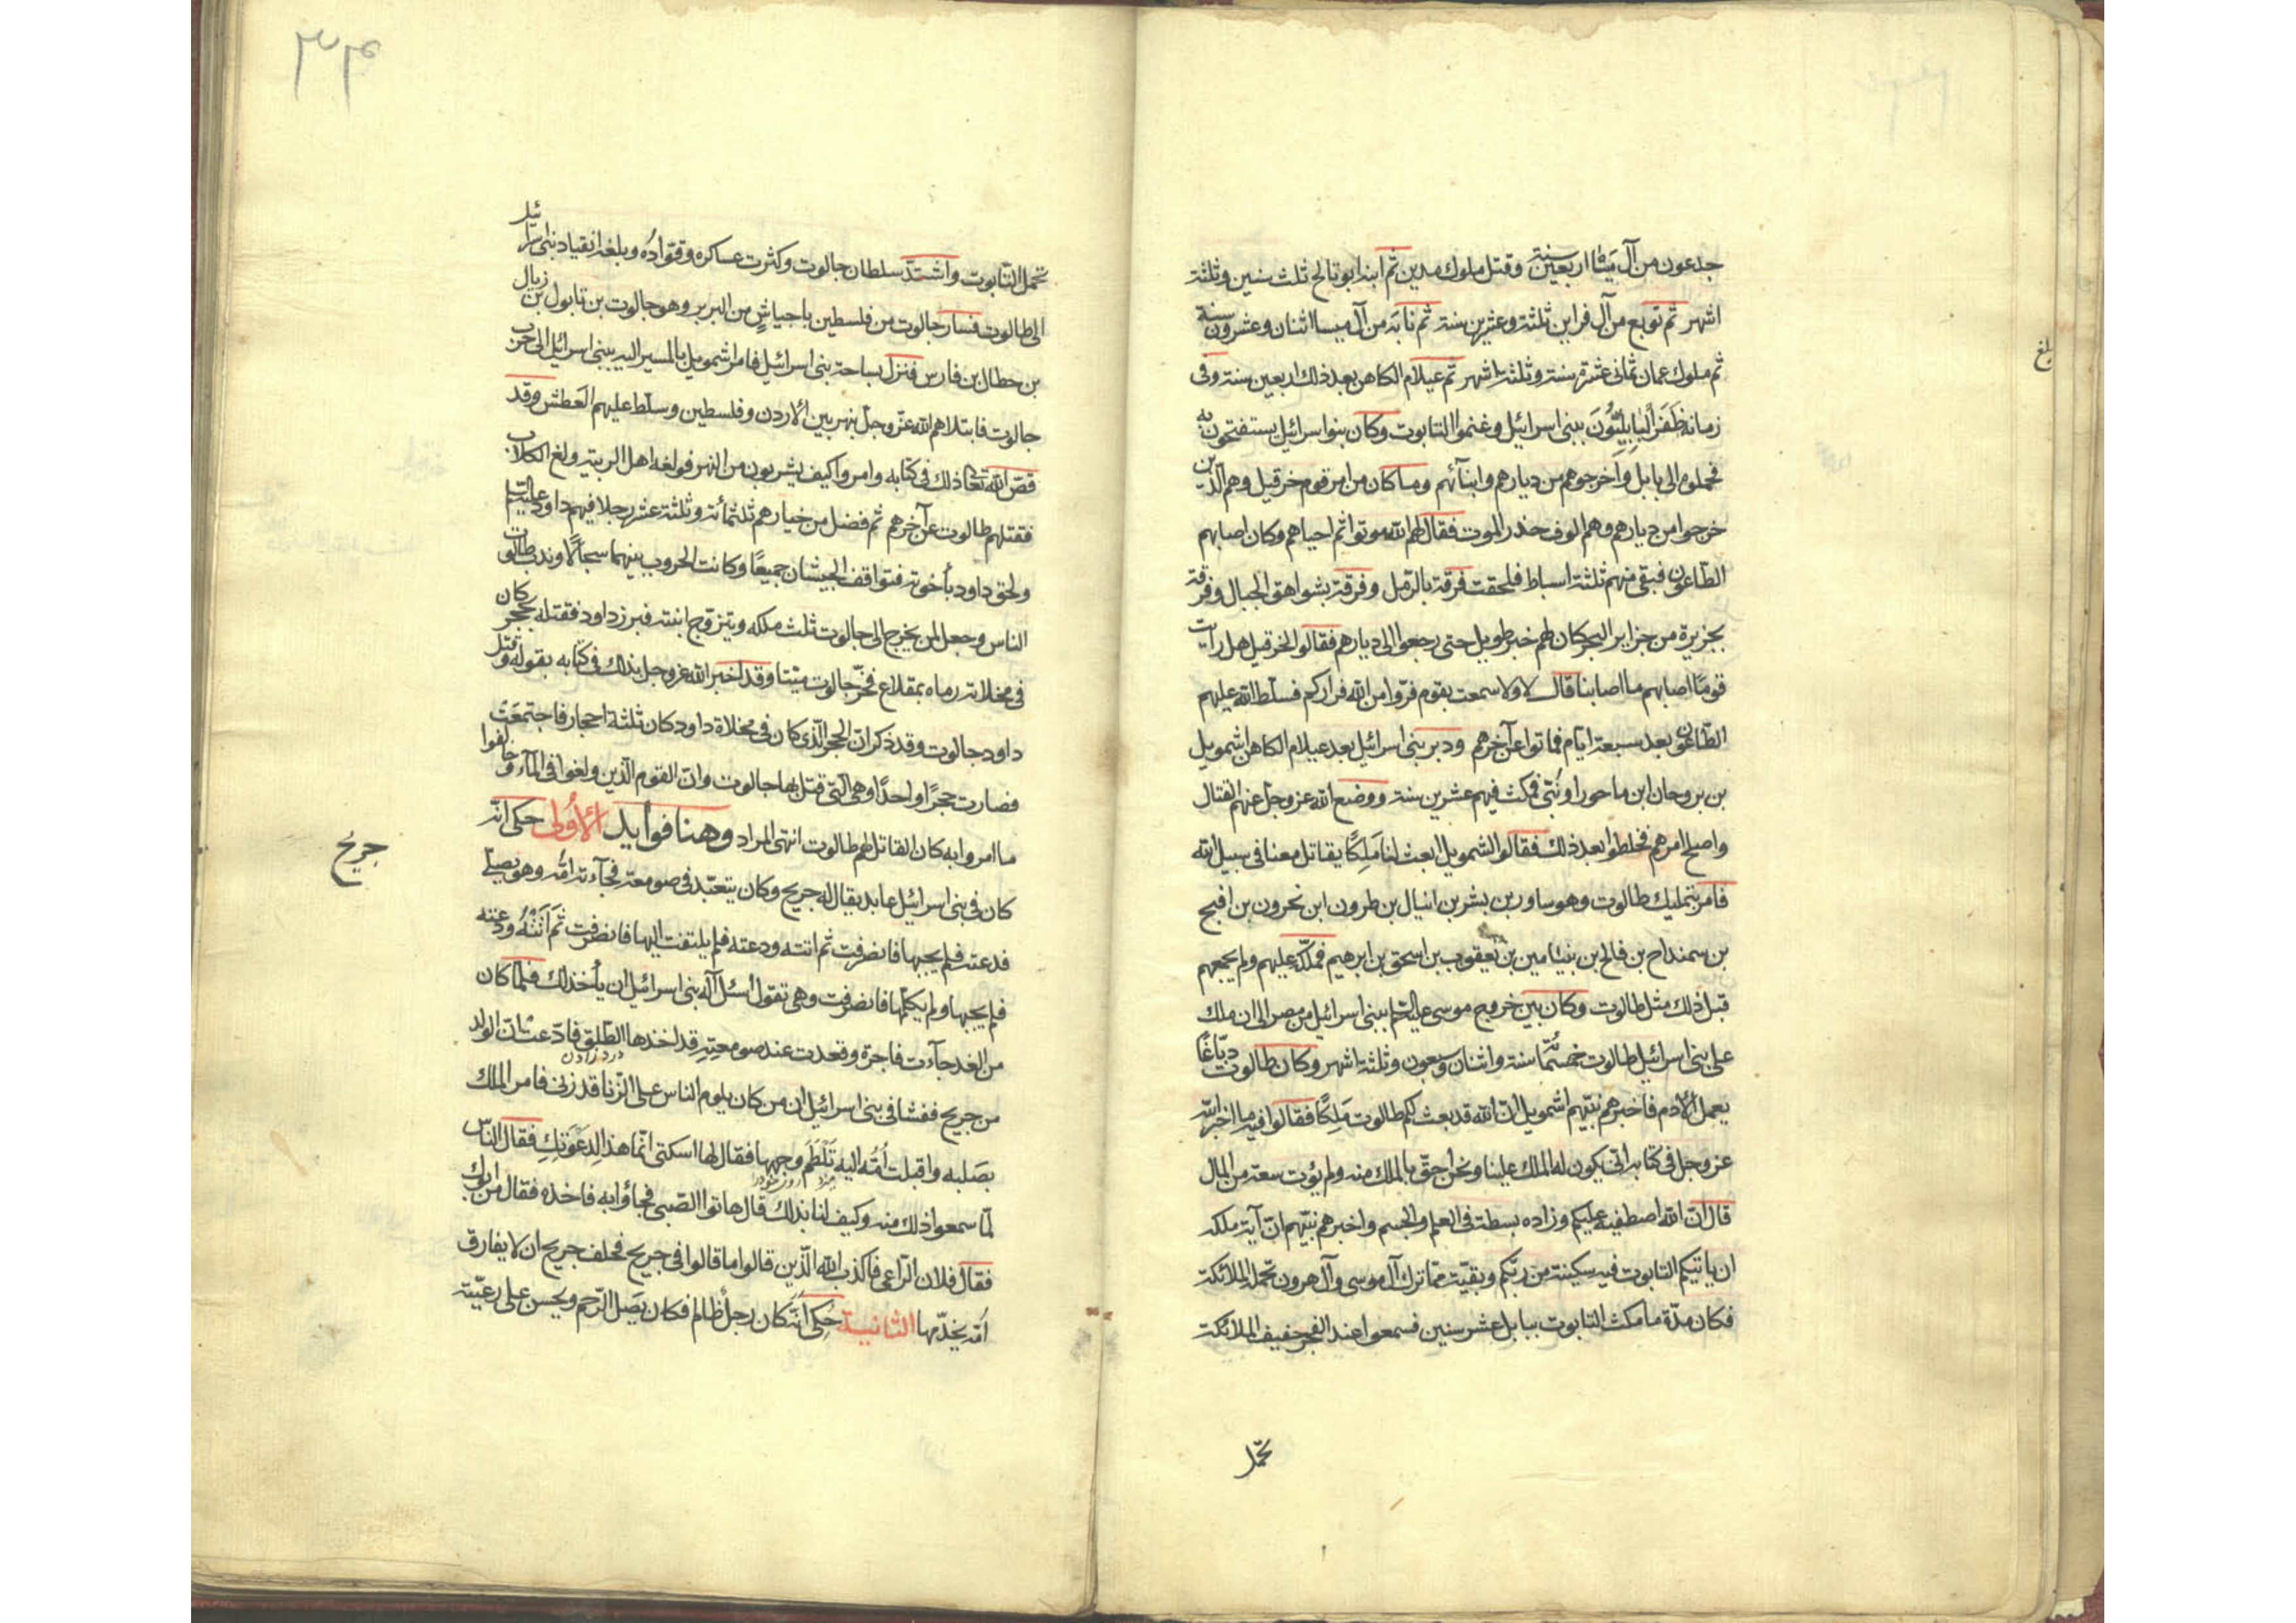 جدعون من آل ميشا اربعين سنة وقتل ملوك مدين ثم ابنه ابوتالخ ثلث سنين وثلثة
اشهر ثم تويع من آل فراين ثلثة وعشرين سنة ثم نابه من آل ميسا اثنان وعشرون سنة
ثم ملوك عمان ثماني عشرة سنة وثلثة اشهر ثم عيلام الكاهن بعد ذلك اربعين سنة وفى
زمانه ظفر البابليّون ببنى اسرائيل وغنموا التابوت وكان بنو اسرائيل يستفتحون به
فحملوه الى بابل واخرجوهم من ديارهم وابنائهم وما كان من امر قوم خرقيل وهم الذين
خرجوا من ديارهم وهم الوف حذر الموت فقال لهم الله موتوا ثم احياهم وكان اصابهم
الطاعون فبقى منهم ثلثة اسباط فلحقت فرقة بالرمل وفرقة بشواهق الجبال وفرقة
بجزيرة من جزاير البحر كان لهم خبر طويل حتى رجعوا الى ديارهم فقالوا لخرقيل هل رايت
قومًا اصابهم ما اصابنا قال لا ولا سمعت بقوم فروا من الله فراركم فسلط الله عليهم
الطاعون بعد سبعة ايام فماتوا عن آخرهم ودبر بنى اسرائيل بعد عيلام الكاهن اشمويل
بن بروحان ابن ماحورا ونبّى فمكث فيهم عشرين سنة ووضع الله عز وجل عنهم القتال
واصلح امرهم فخلطوا بعد ذلك فقالوا لشمويل ابعث لنا مَلِكًا يقاتل معنا فى سبيل الله
فامر بتمليك طالوت وهو ساور بن بشر بن انيال بن طرون ابن نحرون بن افيح
بن سمنداح بن فالح بن بنيامين بن يعقوب بن اسحق بن ابرهيم فملّكه عليهم ولم يجمعهم
قبل ذلك مثل طالوت وكان بين خروج موسى عليه السلام ببنى اسرائيل من مصر الى ان ملك
على بنى اسرائيل طالوت خمسمائة سنة واثنان وسبعون وثلثة اشهر وكان طالوت دبّاغًا
يعمل الادم فاخبرهم نبيّهم اشمويل انّ الله قد بعث لكم طالوت مَلِكًا فقالوا فيه ما اخبر الله
عز وجل فى كتابه انّى يكون له الملك علينا ونحن احقّ بالملك منه ولم يؤت سعة من المال
قال انّ الله اصطفيه عليكم وزاده بسطة فى العلم والجسم واخبرهم نبيّهم انّ آية ملكه
ان ياتيكم التابوت فيه سكينة من ربّكم وبقيّة ممّا ترك آل موسى وآل هرون تحمله الملائكة
فكان مدّة ما مكث التابوت ببابل عشر سنين فسمعوا عند الفجر حفيف الملائكة
تحمل
بلغ
٣٤
تحمل التّابوت واشتدّ سلطان جالوت وكثرت عساكره وقوّاده وبلغه انقياد بنى اسرائيل
الى طالوت فسار جالوت من فلسطين باجياش من البربر وهو جالوت بن تابول بن زيال
بن حطال بن فارس فنزل بساحة بنى اسرائيل فامر اشمويل بالمسير اليه ببنى اسرائيل الى حرب
جالوت فابتلاهم الله عز وجل بنهر بين الاردن وفلسطين وسلّط عليهم العَطش وقد
قصّ الله تعالى ذلك فى كتابه وامروا كيف يشربون من النهر فولغه اهل الريبة ولغ الكلاب
فقتلهم طالوت عن آخرهم ثم فضل من خيارهم ثلثمائة وثلثة عشر رجلا فيهم داود عليه السلام
ولحق داود باخوته فتواقف الجيشان جميعًا وكانت الحروب بينهما سجالًا وندب طالوت
الناس وجعل لمن يخرج الى جالوت ثلث ملكه ويتزوّج ابنته فبرز داود فقتله بحجر كان
فى مخلاته رماه بمقلاع فخرّ جالوت ميّتا وقد اخبر الله عز وجل بذلك فى كتابه بقوله وقتل
داود جالوت وقد ذكر انّ الحجر الّذى كان فى مخلاة داود كان ثلثة احجار فاجتمعَت
فصارت حجرًا واحدًا وهى الّتى قتل بها جالوت وانّ القوم الّذين ولغوا فى المآء وخالفوا
ما امروا به كان القاتل لهم طالوت انتهى المراد وهنا فوايد الأولى حكى انّه
كان فى بنى اسرائيل عابد يقال له جريح وكان يتعبّد فى صومعته فجآءته امّه وهو يصلّى
فدعته فلم يجبها فانصرفت ثم اتته ودعته فلم يلتفت اليها فانصرفت ثم اَتَتْهُ ودعته
فلم يجبها ولم يكلّمها فانصرفت وهى تقول اسئل آله بنى اسرائيل ان يأخذلك فلمّا كان
من الغد جآءت فاجرة وقعدت عند صومعته قد اخذها الطلق فادّعت انّ الولد
درد زادن
من جريح ففشا فى بنى اسرائيل ان من كان يلوم الناس على الزّنا قد زنى فامر الملك
بصَلبه واقبلت اُمّه اليه تَلْطَم وجهها فقال لها اسكتى انّما هذا لِدعوَتكِ فقال النّاس
لمّا سمعوا ذلك منه وكيف لنا بذلك قال هاتوا الصّبى فجاؤا به فاخذه فقال من ابوك
فقال فلان الرّاعى فاكذب الله الّذين قالوا ما قالوا فى جريح فحلف جريح ان لا يفارق
اُمّه يخدّمها الثانية حُكِىَ انّه كان رجل ظالم فكان يَصَل الرّحم ويحسن على رعيّته
جريح